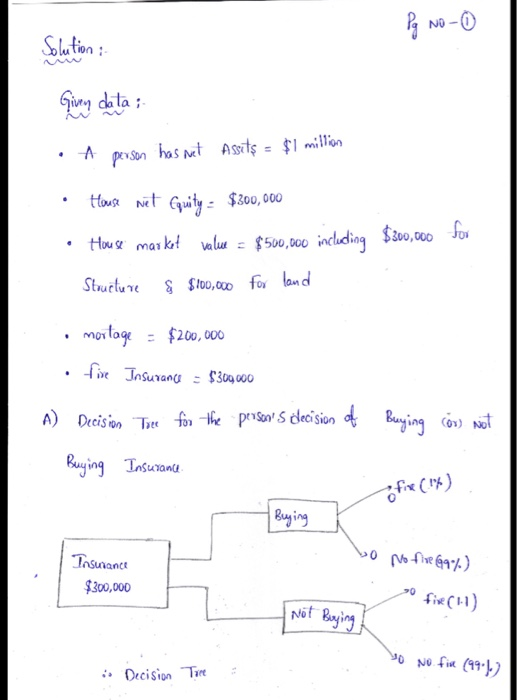 Pg NO - ①
Solution :-
Given data :-
• A person has Net Assets = $1 million
• House Net Equity = $300,000
• House market value = $500,000 including $300,000 for
Structure & $100,000 for land
• mortage = $200,000
• fire Insurance = $300,000
A) Decision Tree for the person's decision of Buying (or) Not
Buying Insurance.
Buying
fire (1%)
No fire (99%)
Insurance
$300,000
Not Buying
fire (1%)
No fire (99%)
∴ Decision Tree =